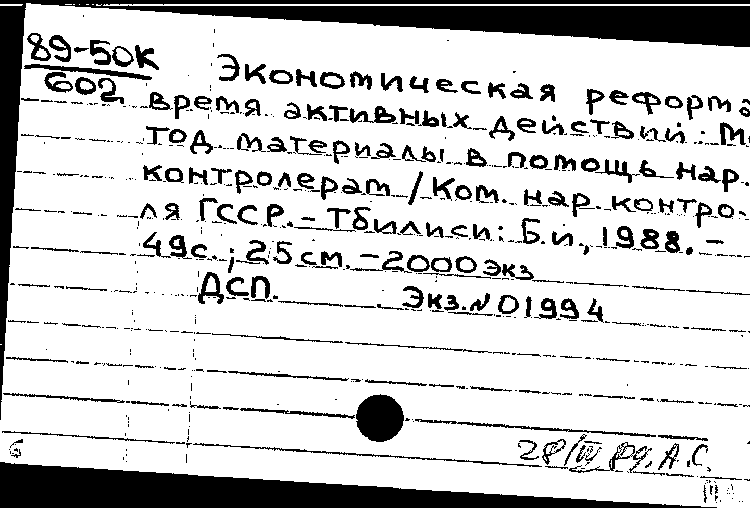 89-50К
602
Экономическая реформа
время активных действий: Ме
тод материалы в помощь нар.
контролерам / Ком. нар. контро-
ля ГССР. – Тбилиси: Б.и., 1988. –
49с.; 25 см. – 2000 экз
ДСП. Экз. № 01994
6
28/IV 89. А.С.